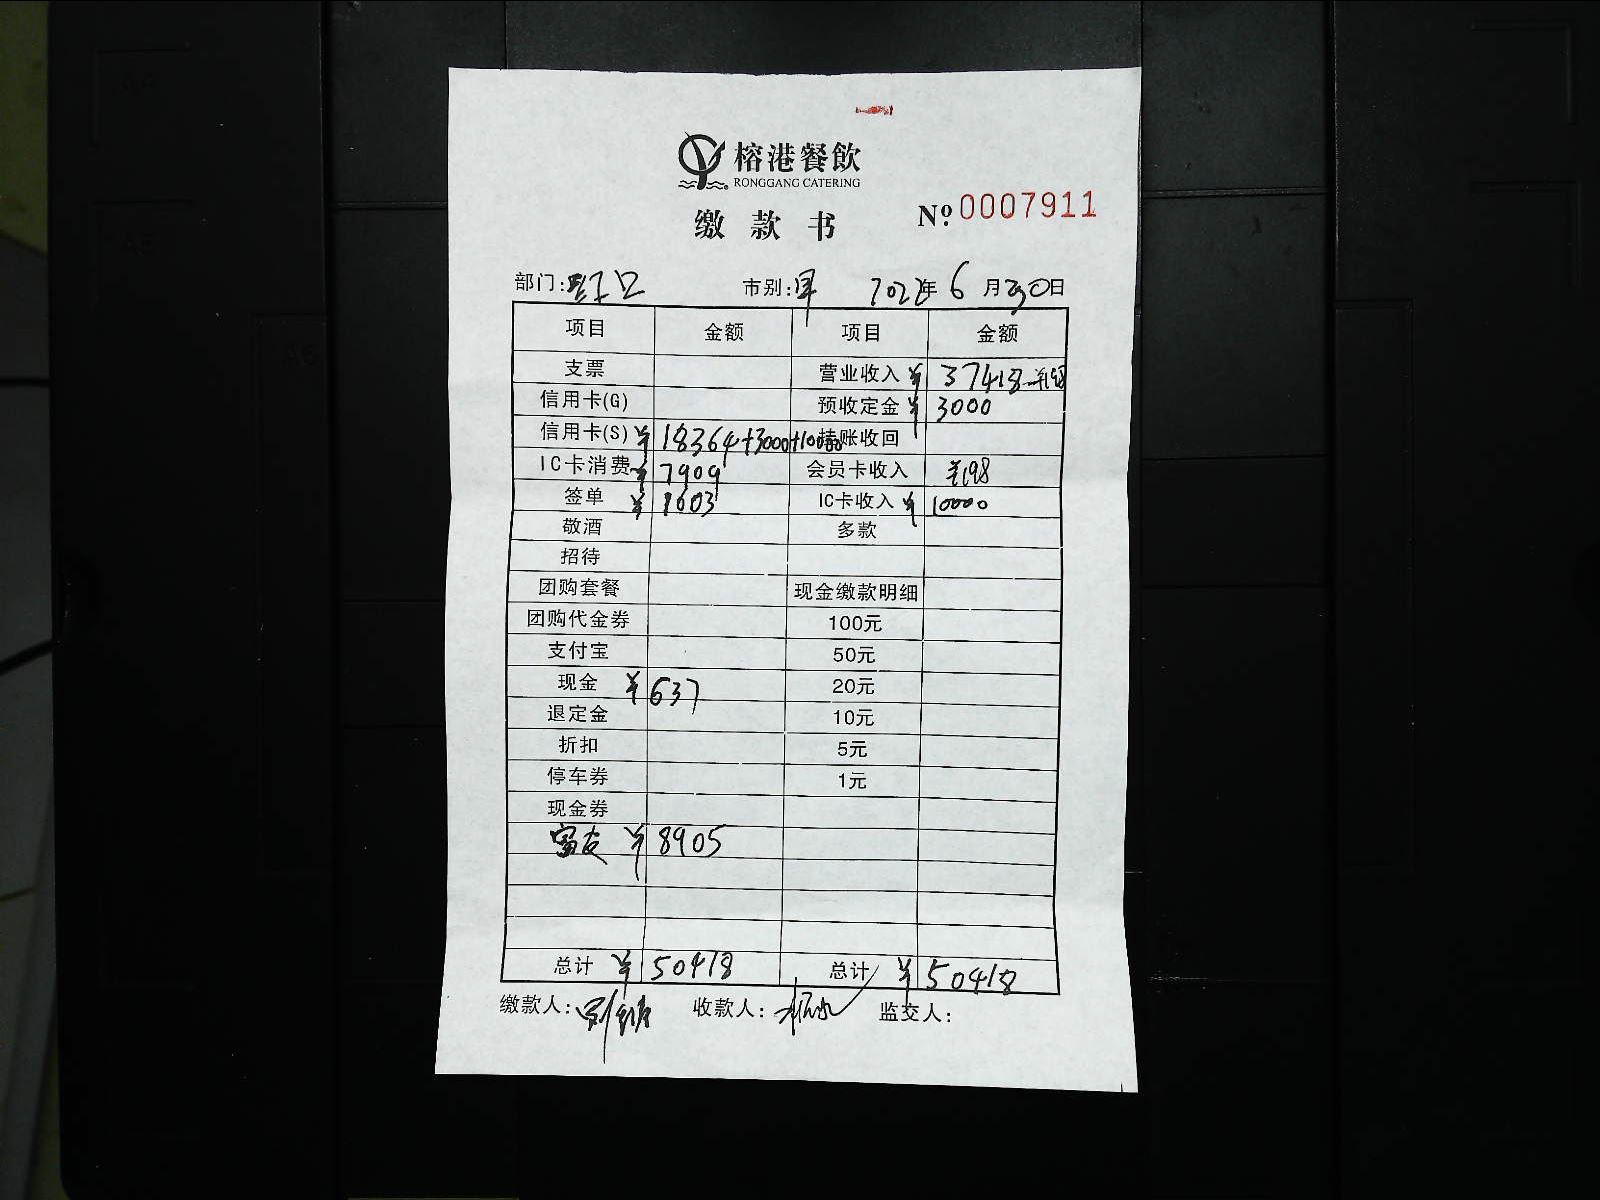 榕港餐飲
RONGGANG CATERING
缴款书 Nº 0007911
部门: 市别: 2022年6月30日
项目 金额 项目 金额
支票 营业收入 ¥37418 - ¥198
信用卡(G) 预收定金 ¥3000
信用卡(S) ¥18364+3000+10000 挂账收回
IC卡消费 ¥7909 会员卡收入 ¥198
签单 ¥1603 IC卡收入 ¥10000
敬酒 多款
招待
团购套餐 现金缴款明细
团购代金券 100元
支付宝 50元
现金 ¥637 20元
退定金 10元
折扣 5元
停车券 1元
现金券
富友 ¥8905
总计 ¥50418 总计 ¥50418
缴款人: 收款人: 监交人: